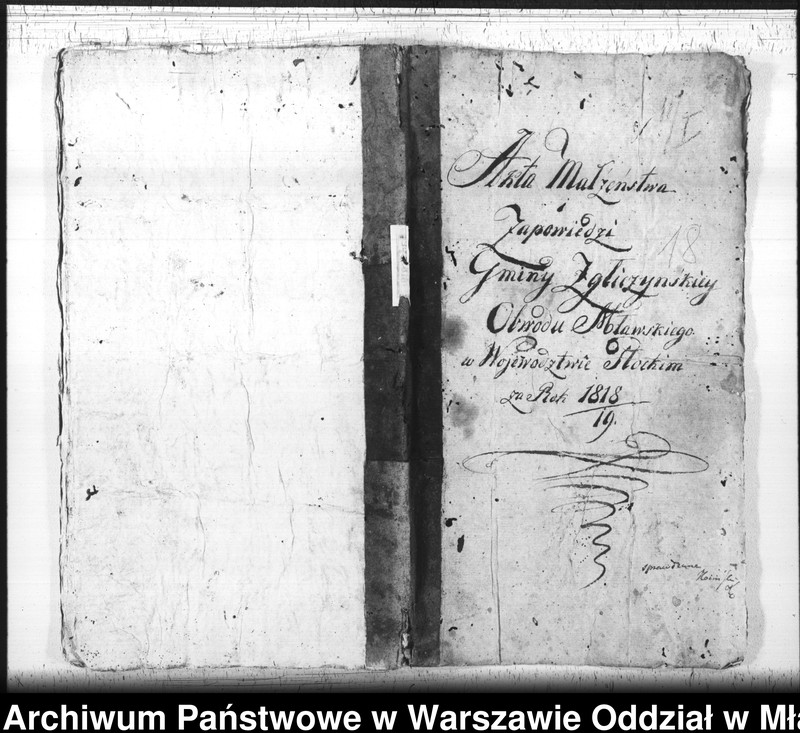 I
Akta Małzeństwa
i
Zapowiedzi
18
Gminy Zgliczynskiey
Obwodu Mławskiego
w Wojewodztwie Płockim
za Rok 1818
19.
sprawdzone
Archiwum Państwowe w Warszawie Oddział w Mła